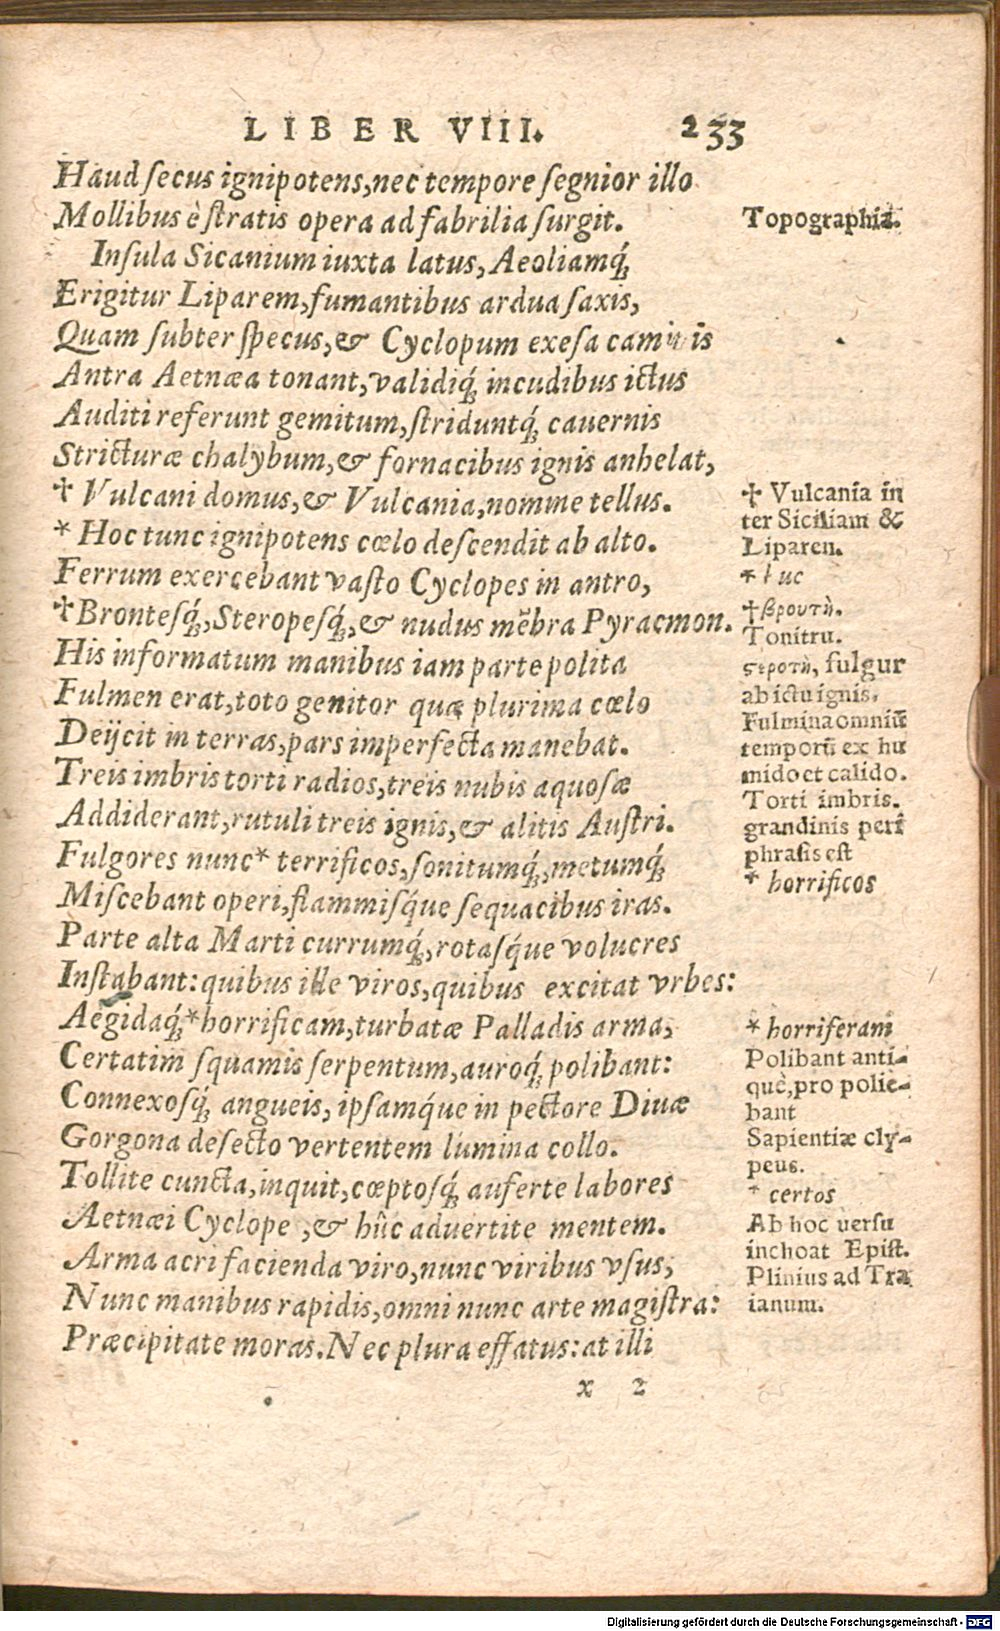 LIBER VIII. 233
Haud secus ignipotens, nec tempore segnior illo
Mollibus è stratis opera ad fabrilia surgit.
Topographia.
Insula Sicanium iuxta latus, Aeoliamq́;
Erigitur Liparem, fumantibus ardua saxis,
Quam subter specus, & Cyclopum exesa caminis
Antra Aetnæa tonant, validiq́; incudibus ictus
Auditi referunt gemitum, striduntq́; cauernis
Stricturæ chalybum, & fornacibus ignis anhelat,
✝ Vulcani domus, & Vulcania, nomine tellus.
* Hoc tunc ignipotens cœlo descendit ab alto.
Ferrum exercebant vasto Cyclopes in antro,
✝ Brontesq́;, Steropesq́;, & nudus mẽbra Pyracmon.
His informatum manibus iam parte polita
Fulmen erat, toto genitor quæ plurima cœlo
Deijcit in terras, pars imperfecta manebat.
Treis imbris torti radios, treis nubis aquosæ
Addiderant, rutuli treis ignis, & alitis Austri.
Fulgores nunc * terrificos, sonitumq́;, metumq́;
Miscebant operi, flammisq́ue sequacibus iras.
Parte alta Marti currumq́;, rotasq́ue volucres
Instabant: quibus ille viros, quibus excitat vrbes:
Aegidaq́; * horrificam, turbatæ Palladis arma,
Certatim squamis serpentum, auroq́; polibant:
Connexosq́; angueis, ipsamq́ue in pectore Diuæ
Gorgona desecto vertentem lumina collo.
Tollite cuncta, inquit, cœptosq́; auferte labores
Aetnæi Cyclope , & hûc aduertite mentem.
Arma acri facienda viro, nunc viribus vsus,
Nunc manibus rapidis, omni nunc arte magistra:
Præcipitate moras. Nec plura effatus: at illi
x 2
✝ Vulcania in
ter Siciliam &
Liparen.
* huc
✝ βροντὴ.
Tonitru.
ϛεροπὴ, fulgur
ab ictu ignis.
Fulmina omniũ
temporũ ex hu
mido et calido.
Torti imbris.
grandinis peri
phrasis est
* horrificos
* horriferam
Polibant anti-
què, pro polie-
bant
Sapientiæ cly-
peus.
* certos
Ab hoc uersu
inchoat Epist.
Plinius ad Tra
ianum.
Digitalisierung gefördert durch die Deutsche Forschungsgemeinschaft - DFG